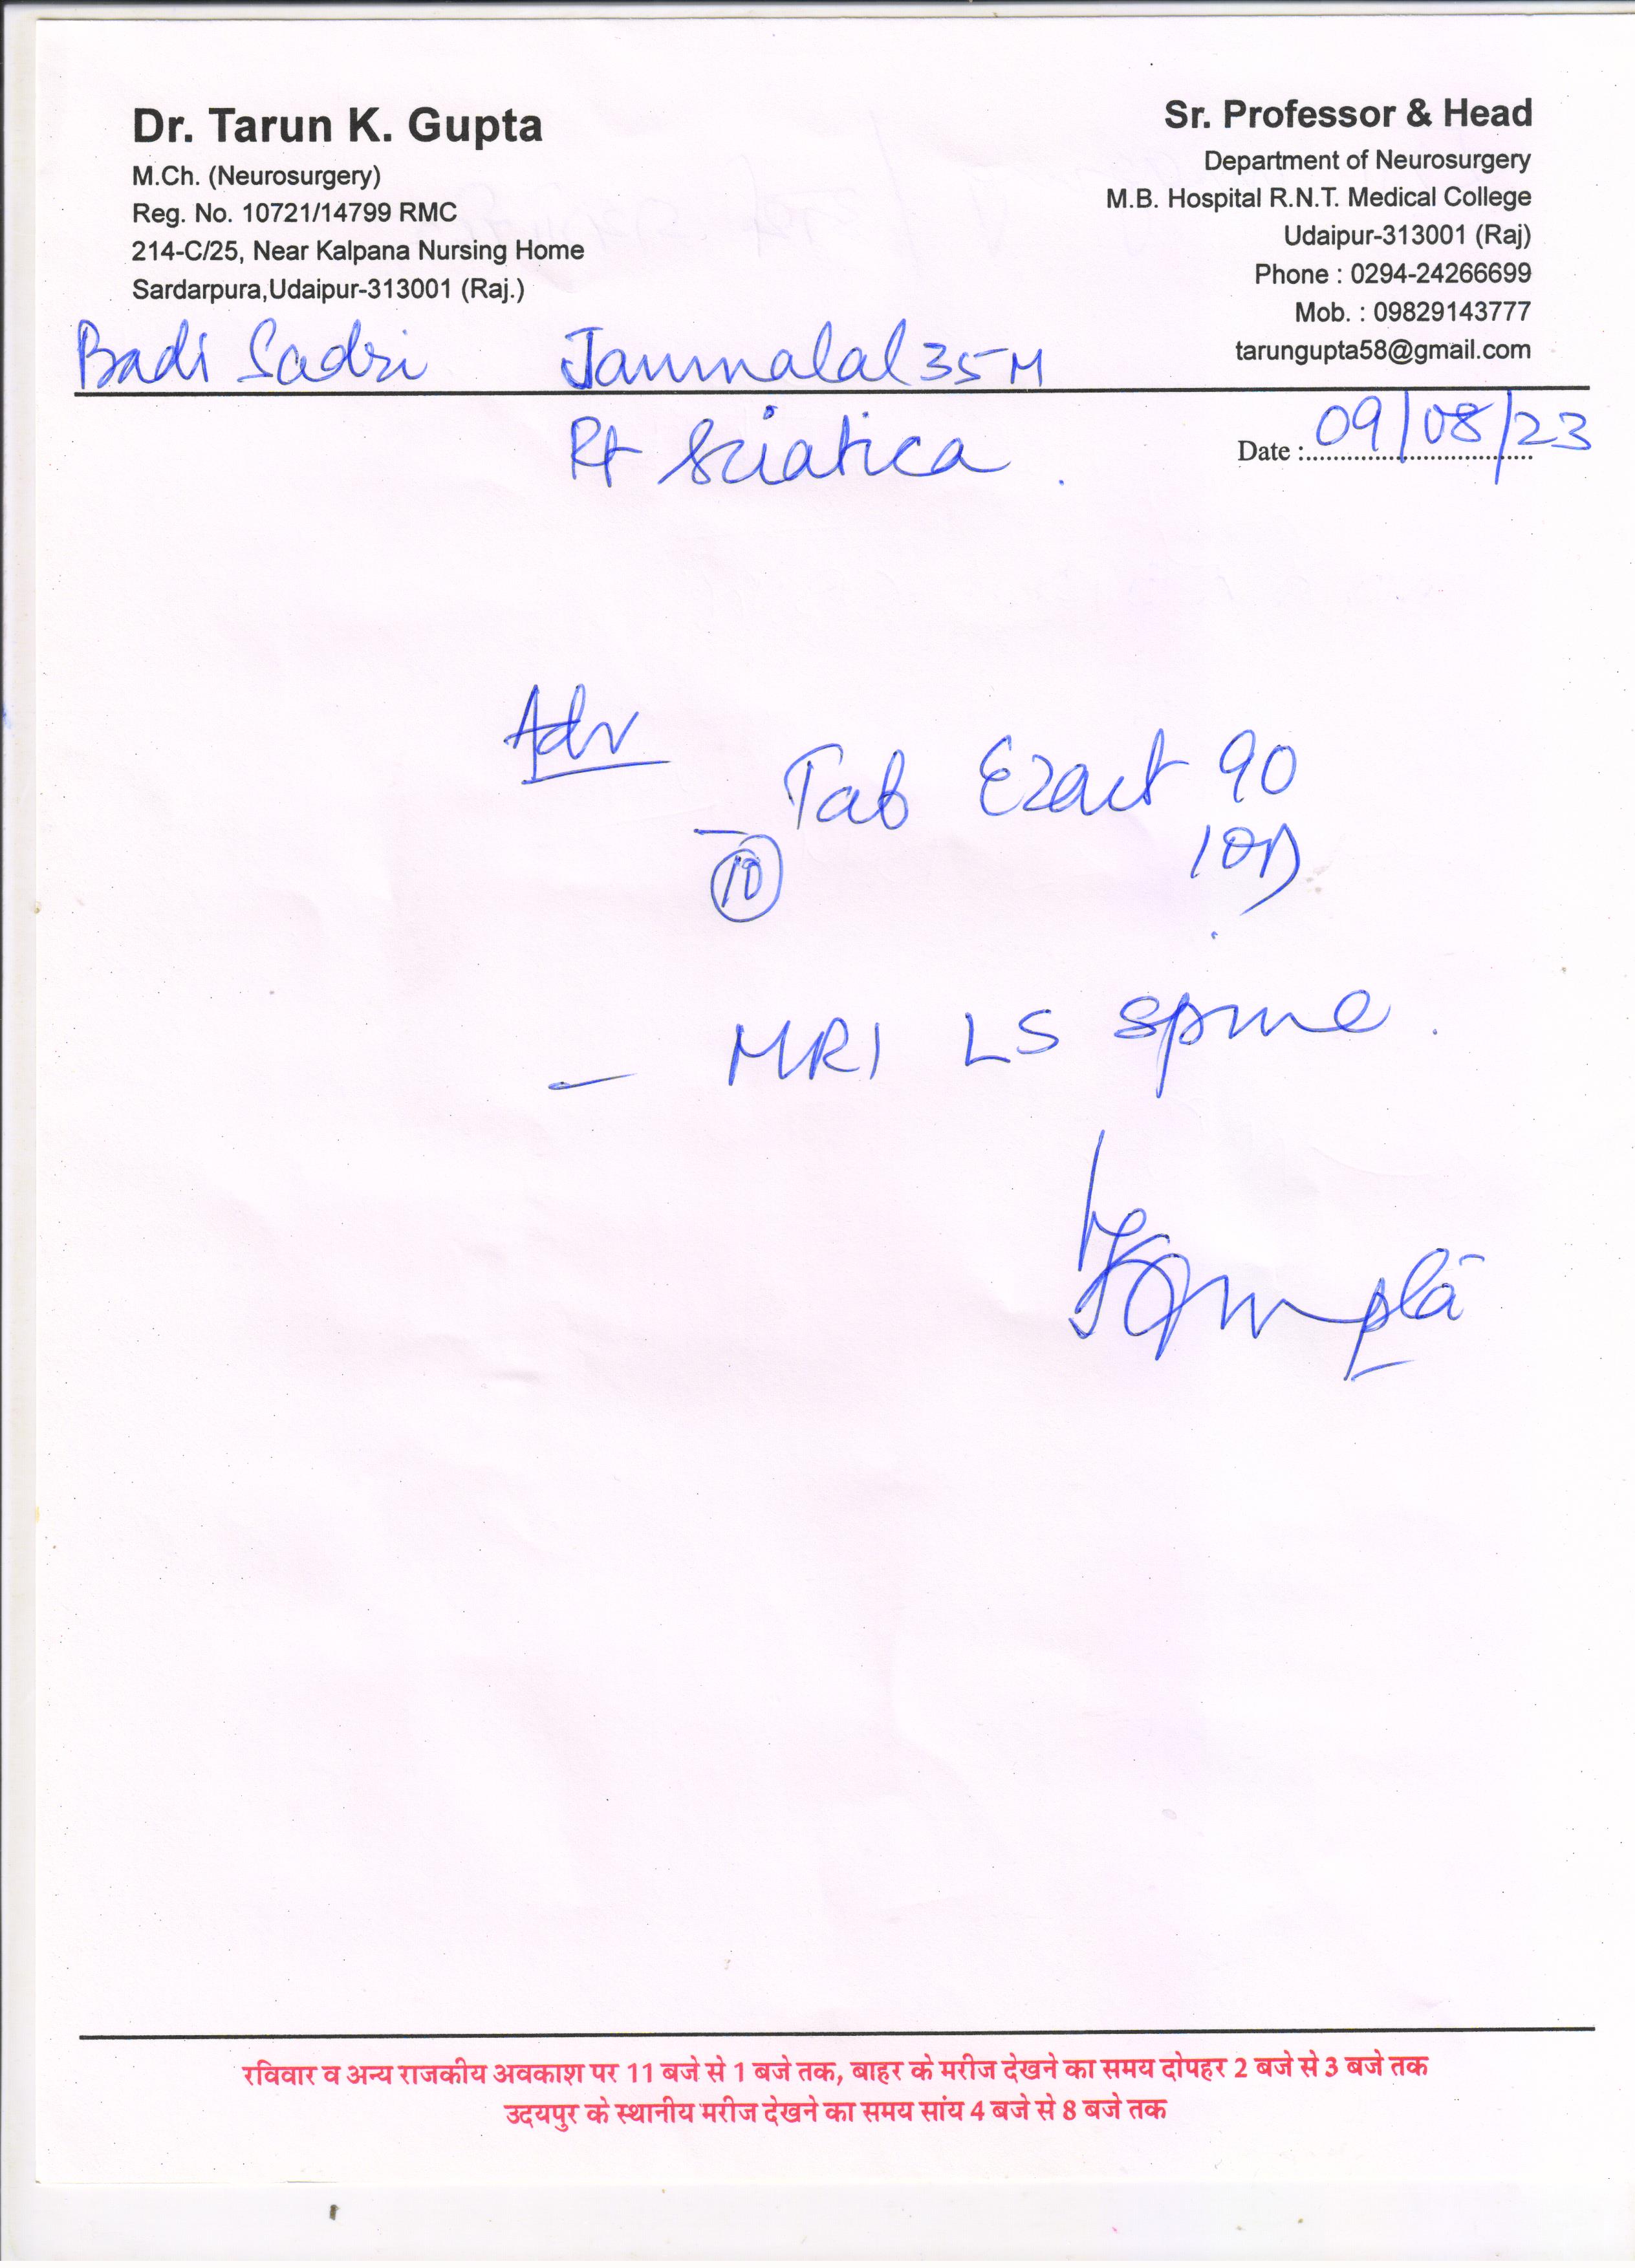 Dr. Tarun K. Gupta
M.Ch. (Neurosurgery)
Reg. No. 10721/14799 RMC
214-C/25, Near Kalpana Nursing Home
Sardarpura,Udaipur-313001 (Raj.)
Sr. Professor & Head
Department of Neurosurgery
M.B. Hospital R.N.T. Medical College
Udaipur-313001 (Raj)
Phone : 0294-24266699
Mob. : 09829143777
tarungupta58@gmail.com
Badi Sadri 35 M
Rt Sciatica.
Date : 09/08/23
Adv
- Tab Ezact 90
10 1OD
- MRI LS spine.
रविवार व अन्य राजकीय अवकाश पर 11 बजे से 1 बजे तक, बाहर के मरीज देखने का समय दोपहर 2 बजे से 3 बजे तक
उदयपुर के स्थानीय मरीज देखने का समय सांय 4 बजे से 8 बजे तक